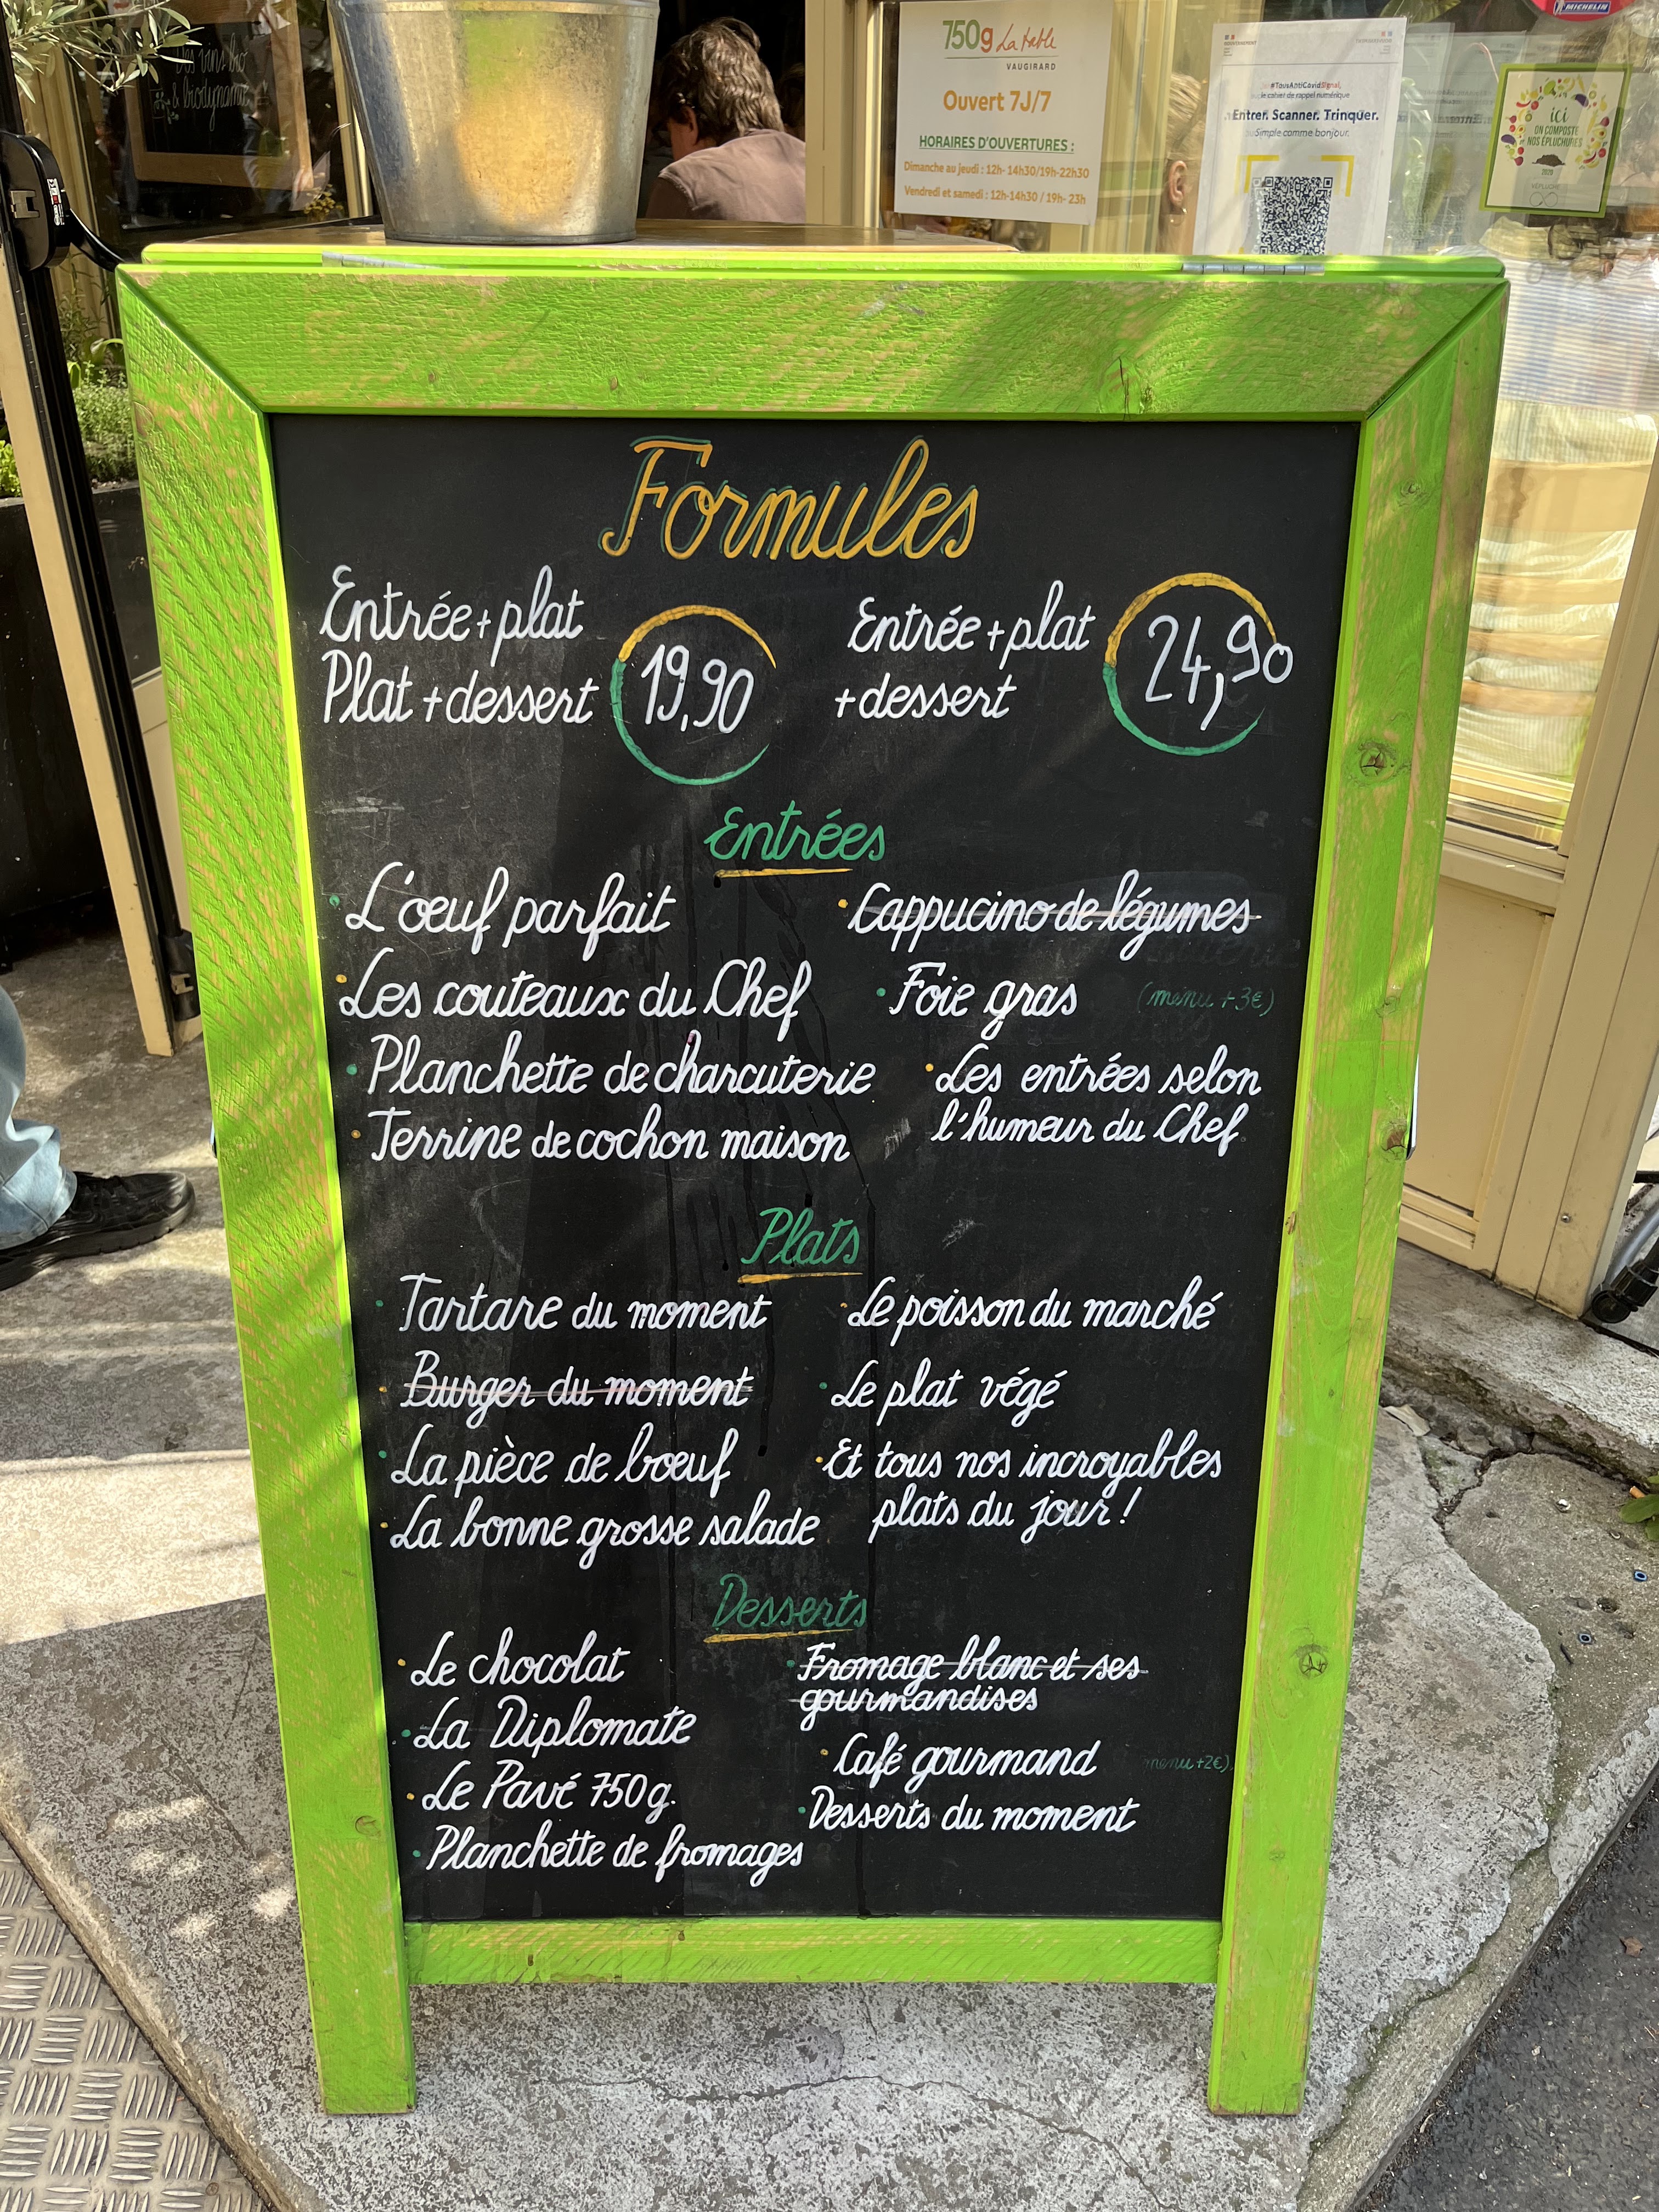 Des vins bio
& biodynamie
750g La table
VAUGIRARD
Ouvert 7J/7
HORAIRES D'OUVERTURES :
Dimanche au jeudi : 12h- 14h30/19h-22h30
Vendredi et samedi : 12h-14h30 / 19h- 23h
#TousAntiCovidSignal,
le cahier de rappel numérique
Entrer. Scanner. Trinquer.
Simple comme bonjour.
MICHELIN
ici
ON COMPOSTE
NOS ÉPLUCHURES
2020
Formules
Entrée + plat
Plat + dessert
19,90
Entrée + plat
+ dessert
24,90
Entrées
L'œuf parfait
Cappucino de légumes
Les couteaux du Chef
Foie gras (menu + 3€)
Planchette de charcuterie
Les entrées selon
l'humeur du Chef
Terrine de cochon maison
Plats
Tartare du moment
Le poisson du marché
Burger du moment
Le plat végé
La pièce de bœuf
Et tous nos incroyables
plats du jour !
La bonne grosse salade
Desserts
Le chocolat
Fromage blanc et ses
gourmandises
La Diplomate
Café gourmand menu +2€)
Le Pavé 750g.
Desserts du moment
Planchette de fromages